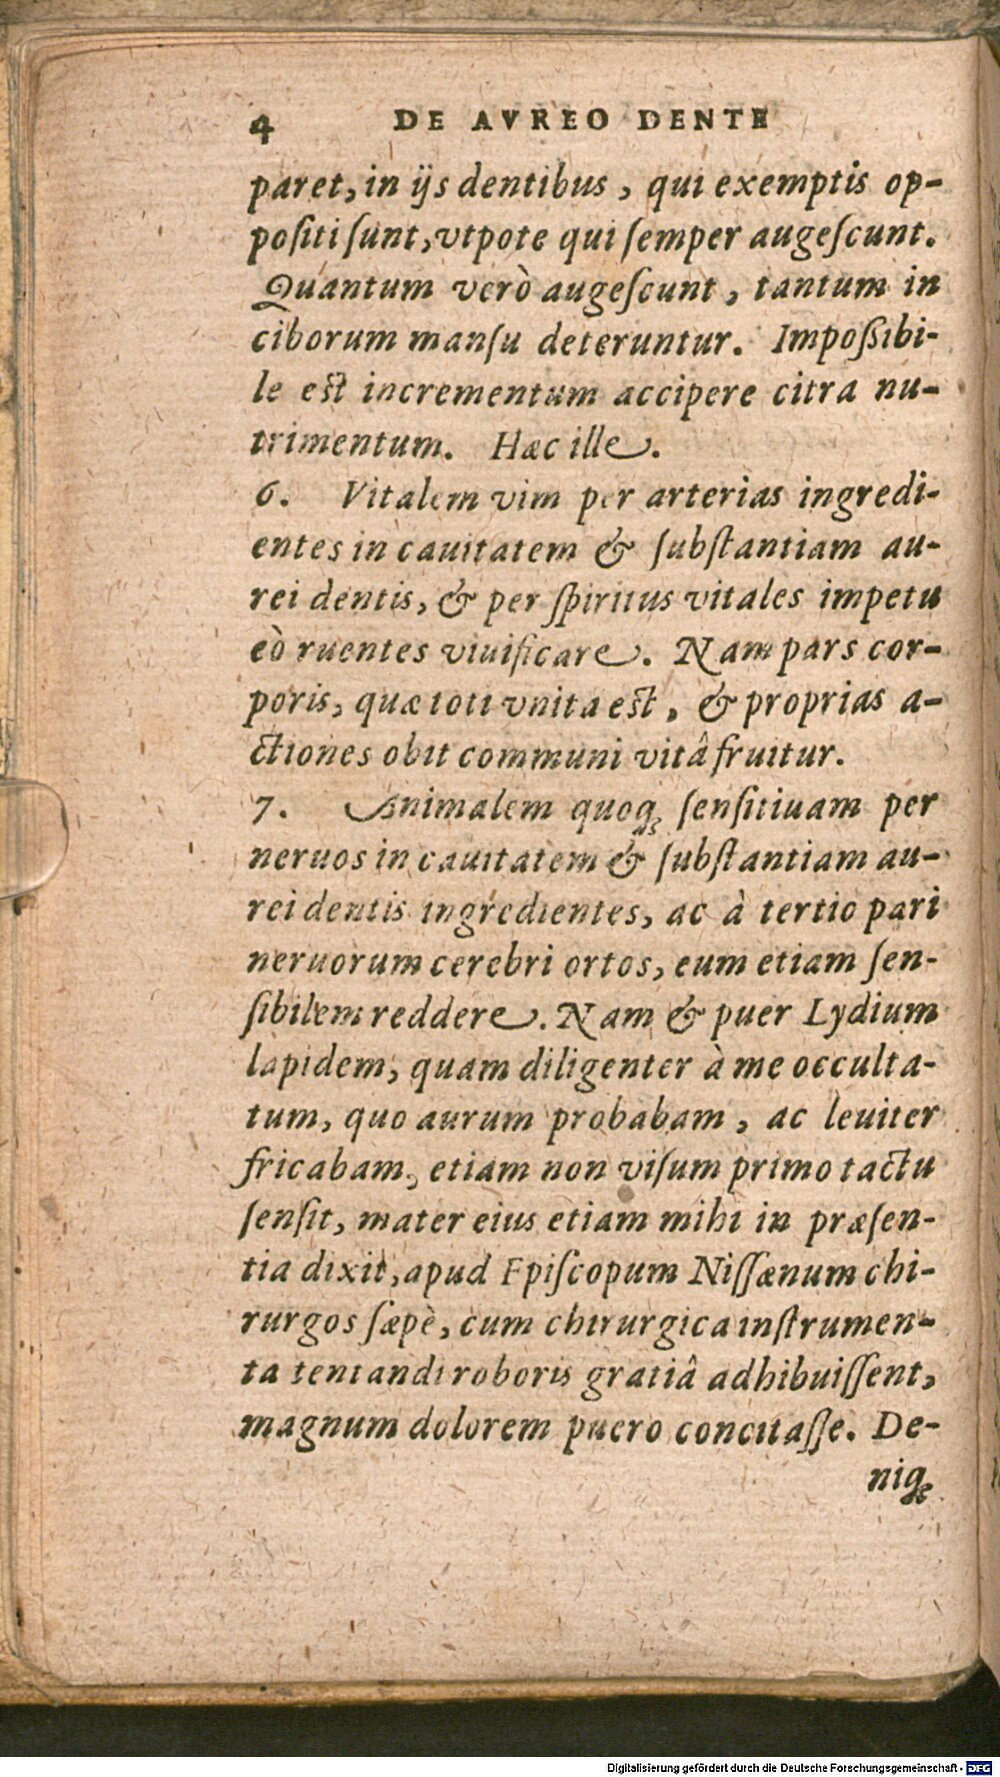 4 DE AVREO DENTE
paret, in ijs dentibus, qui exemptis op-
positi ſunt, vtpote qui ſemper augeſcunt.
Quantum verò augeſcunt, tantum in
ciborum manſu deteruntur. Impoßibi-
le est incrementum accipere citra nu-
trimentum. Hæc ille.
6. Vitalem vim per arterias ingredi-
entes in cauitatem & ſubſtantiam au-
rei dentis, & per ſpiritus vitales impetu
eò ruentes viuificare. Nam pars cor-
poris, quæ toti vnita est, & proprias a-
ctiones obit communi vitâ fruitur.
7. Animalem quoq; ſenſitiuam per
neruos in cauitatem & ſubſtantiam au-
rei dentis ingredientes, ac à tertio pari
neruorum cerebri ortos, eum etiam ſen-
ſibilem reddere. Nam & puer Lydium
lapidem, quam diligenter à me occulta-
tum, quo aurum probabam, ac leuiter
fricabam, etiam non viſum primo tactu
ſenſit, mater eius etiam mihi in præſen-
tia dixit, apud Epiſcopum Niſſænum chi-
rurgos ſæpè, cum chirurgica inſtrumen-
ta tentandi roboris gratiâ adhibuiſſent,
magnum dolorem puero concitaſſe. De-
niq;
Digitalisierung gefördert durch die Deutsche Forschungsgemeinschaft - DFG